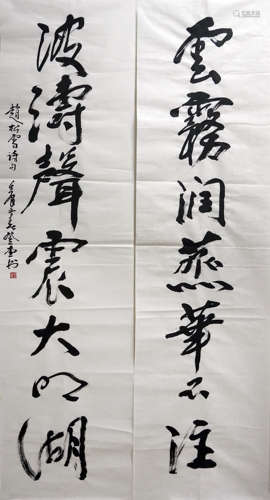 雲霧润蒸華不注
波濤聲震大明湖
趙松雪詩句